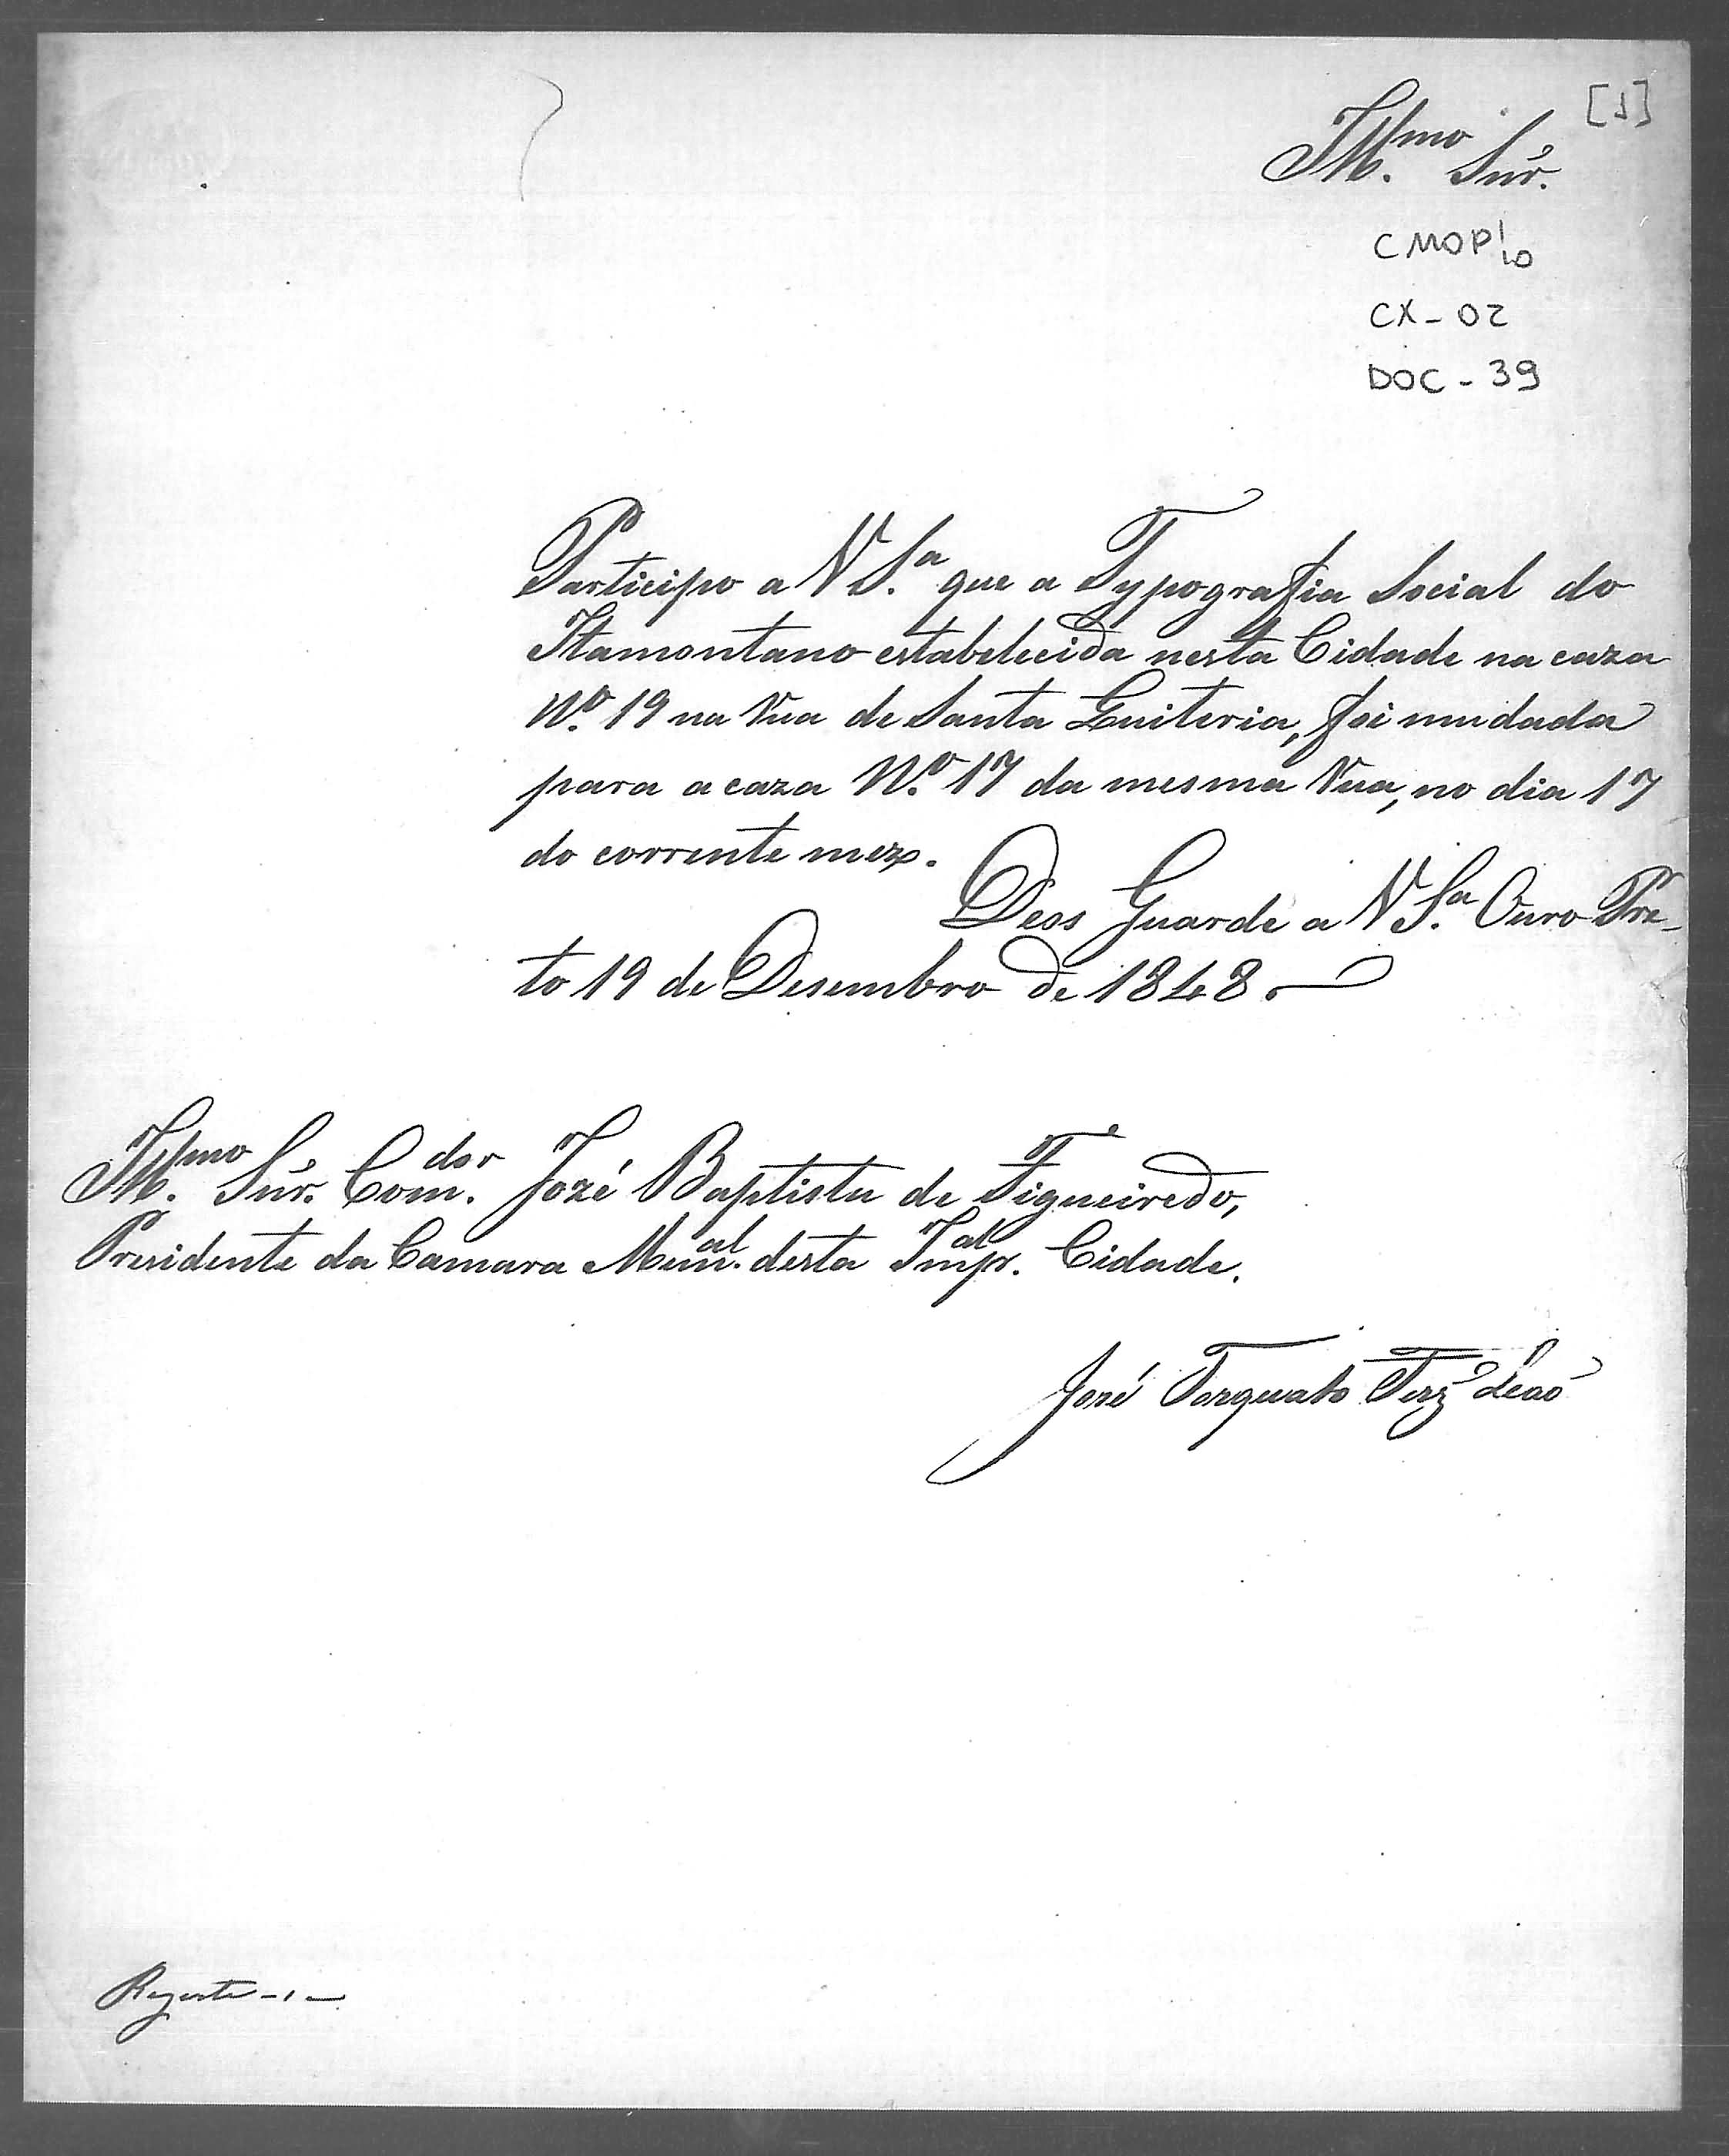 [1]
Ill.mo Snr.
CMOP 10
CX-02
DOC-39
Participo a V S.a que a Typografia Social do
Itamontano estabelecida nesta Cidade na caza
N.o 19 na Rua de Santa Quiteria, foi mudada
para a caza N.o 17 da mesma Rua, no dia 17
do corrente mez.
Deos Guarde a V S.a Ouro Pre-
to 19 de Desembro de 1848.
Ill.mo Snr. Com.dor Jozé Baptista de Figueiredo,
Presidente da Camara Mun.al desta Imp.al Cidade.
José Torquato Frz Leaõ